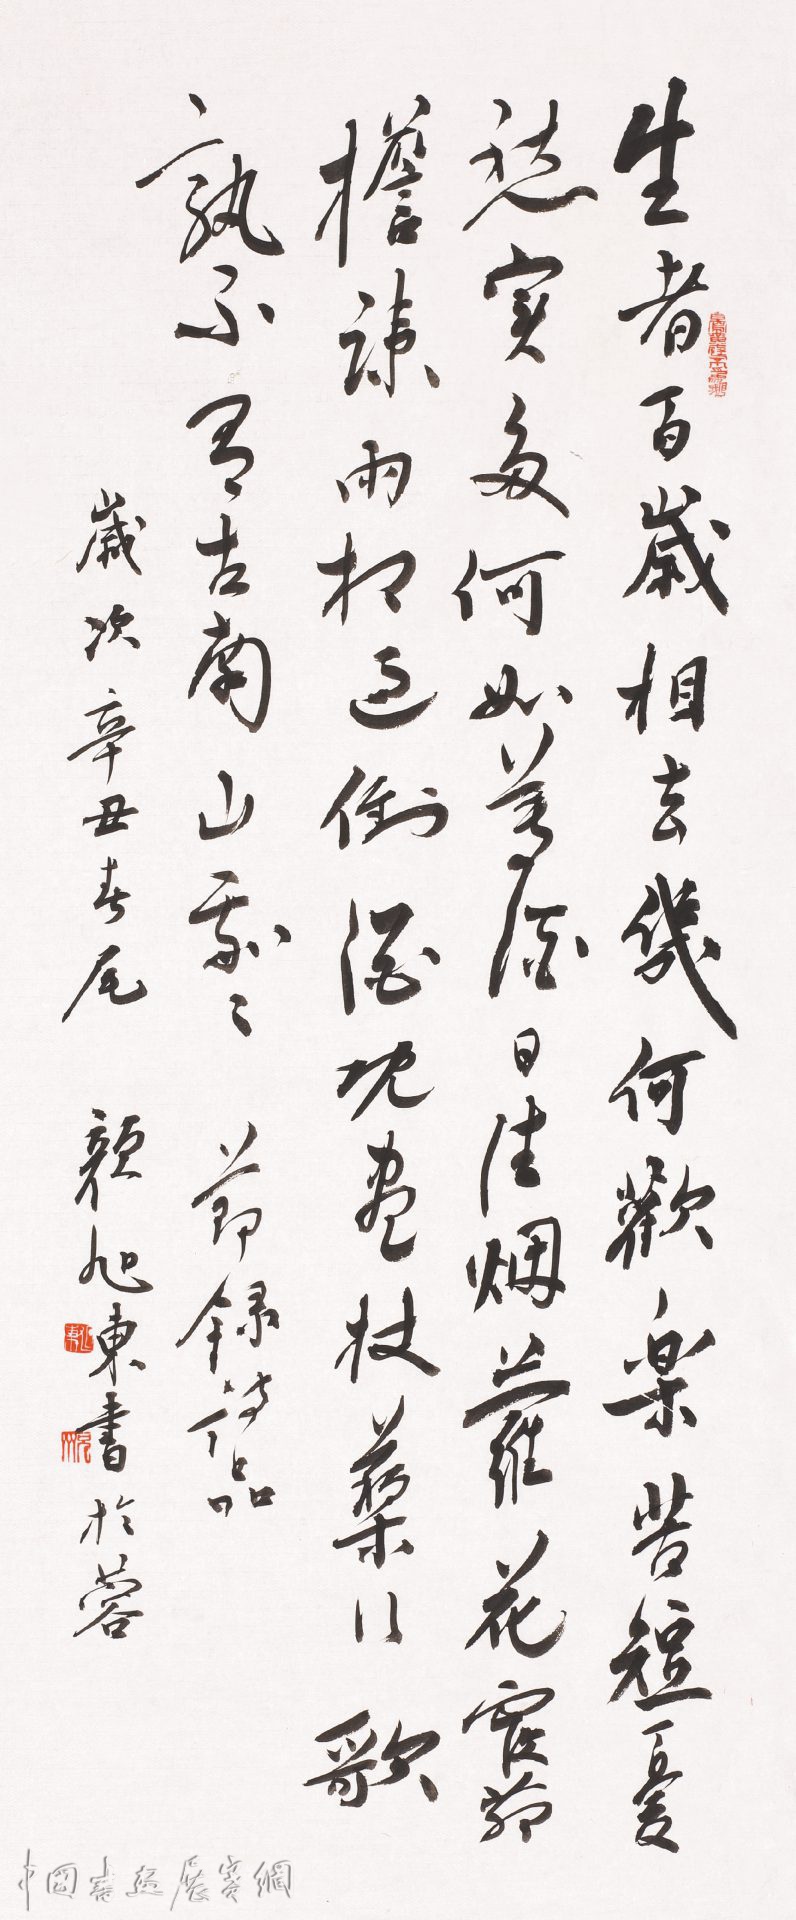 生者百歲相去幾何歡楽苦短憂
愁實多何如尊酒日往烟蘿花覆茆
檐疎雨相過倒酒既盡杖藜行歌
孰不有古南山峩々 節録詩品
歲次辛丑春尾 顏旭東書於蓉
中國書画展賽網